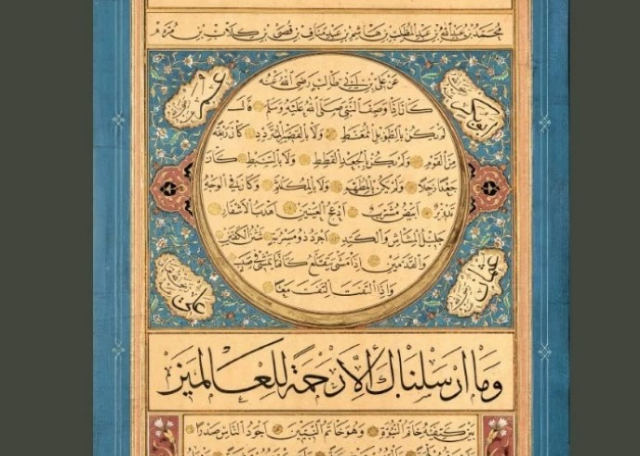 محمد بن عبد الله بن عبد المطلب بن هاشم بن عبد مناف بن قصي بن كلاب بن مرة
ابو بكر
عمر
عن علي بن ابي طالب رضي الله عنه
كان اذا وصف النبي صلى الله عليه وسلم قال
لم يكن بالطويل الممغط ولا بالقصير المتردد كان ربعة
من القوم ولم يكن بالجعد القطط ولا بالسبط كان
جعدا رجلا ولم يكن بالمطهم ولا بالمكلثم وكان في الوجه
تدوير ابيض مشرب ادعج العينين اهدب الاشفار
جليل المشاش والكتد اجرد ذو مسربة شثن الكفين
والقدمين اذا مشى يتقلع كانما يمشي في صبب
واذا التفت التفت معا
عثمان
علي
وما ارسلناك الا رحمة للعالمين
بين كتفيه خاتم النبوة وهو خاتم النبيين اجود الناس صدرا